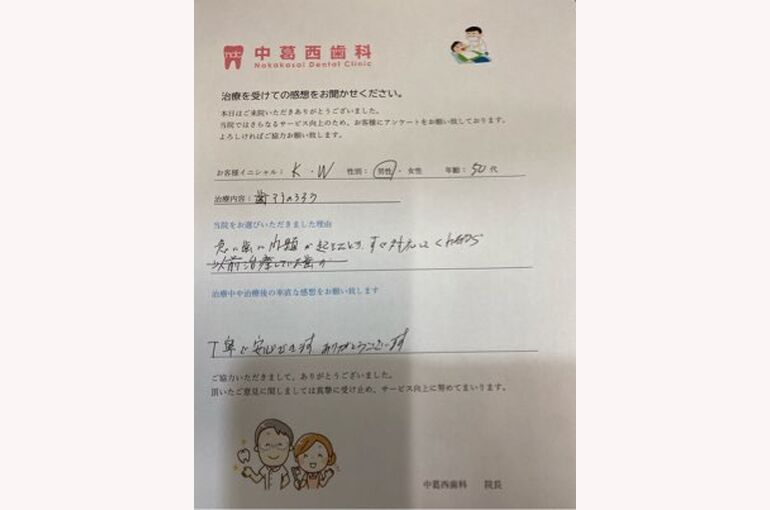 ndc 中葛西歯科
Nakakasai Dental Clinic
治療を受けての感想をお聞かせください。
本日はご来院いただきありがとうございました。
当院ではさらなるサービス向上のため、お客様にアンケートをお願い致しております。
よろしければご協力お願い致します。
お客様イニシャル： K・W 性別： 男性 ・ 女性 年齢： 50 代
治療内容： 歯
当院をお選びいただきました理由
急に歯に問題が起きたとき、すぐ対応してくれるから
以前治療していた歯が
治療中や治療後の率直な感想をお願い致します
丁寧で安心できます ありがとうございます
ご協力いただきまして、ありがとうございました。
頂いたご意見に関しましては真摯に受け止め、サービス向上に努めてまいります。
中葛西歯科 院長